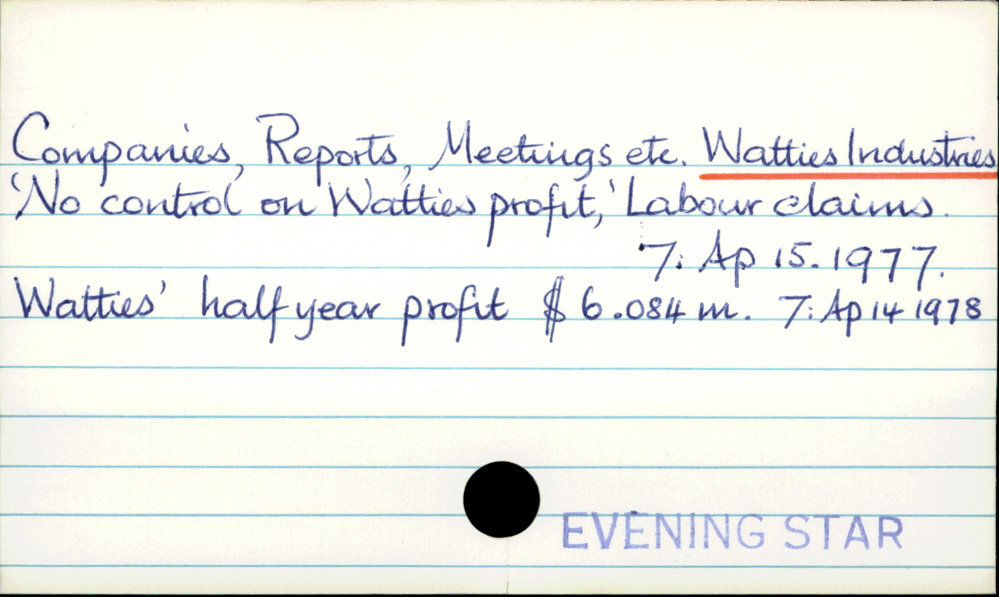 Companies, Reports, Meetings etc. Watties Industries
'No control on Watties profit,' Labour claims.
7: Ap 15. 1977.
Watties' half year profit $6.084 m. 7: Ap 14 1978
EVENING STAR